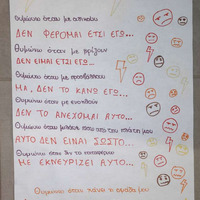 Θυμώνω όταν με
ΔΕΝ ΦΕΡΟΜΑΙ ΕΤΣΙ ΕΓΩ...
Θυμώνω όταν με βρίζουν
ΔΕΝ ΕΙΜΑΙ ΕΤΣΙ ΕΓΩ...
Θυμώνω όταν με προσβάλλουν
ΜΑ, ΔΕΝ ΤΟ ΚΑΝΩ ΕΓΩ...
Θυμώνω όταν με ενοχλούν
ΔΕΝ ΤΟ ΑΝΕΧΟΜΑΙ ΑΥΤΟ...
Θυμώνω όταν μιλάνε πίσω από την πλάτη μου
ΑΥΤΟ ΔΕΝ ΕΙΝΑΙ ΣΩΣΤΟ...
Θυμώνω όταν δεν τα καταφέρνω
ΜΕ ΕΚΝΕΥΡΙΖΕΙ ΑΥΤΟ...
Θυμώνω όταν χάνει η ομάδα μου